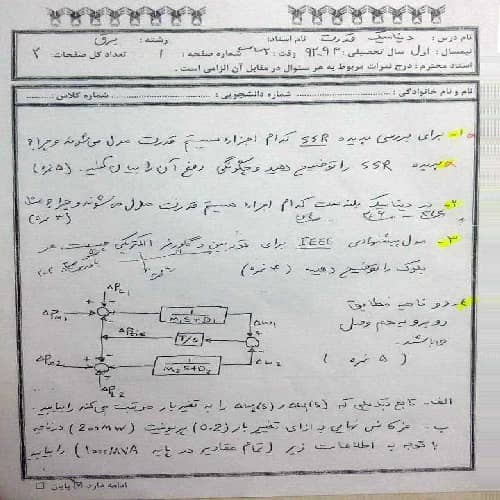 نام درس: دینامیک قدرت نام استاد: رشته: برق
نیمسال: اول سال تحصیلی: ۹۳-۹۲ وقت: شماره صفحه: ۱ تعداد کل صفحات: ۲
استاد محترم: درج نمرات مربوط به هر سئوال در مقابل آن الزامی است.
نام و نام خانوادگی: شماره دانشجویی: شماره کلاس:
۱- برای بررسی پدیده SSR کدام اجزاء سیستم قدرت مدل می‌شوند و چرا؟
پدیده SSR را توضیح دهید و چگونگی رفع آن را بیان کنید. (۵ نمره)
۲- در دینامیک بلند مدت کدام اجزاء سیستم قدرت مدل می‌شوند و چرا؟
(۳ نمره)
۳- مدل پیشنهادی IEEE برای توربین و گاورنر الکتریکی چیست هر
بلوک را توضیح دهید (۴ نمره)
۴- دو ناحیه مطابق
روبرو به هم وصل
می‌باشند.
(۵ نمره)
ΔPL1
ΔPm1
1/M1S+D1
Δω1
ΔPtie
T/S
ΔPm2
1/M2S+D2
Δω2
ΔPL2
الف- تابع تبدیلی که Δω1(s) و Δω2(s) را به تغییر بار مرتبط می‌کند را بیابید.
ب- فرکانس نهایی به ازای تغییر بار (0.2) پریونیت (200MW) در ناحیه
با توجه به اطلاعات زیر (تمام مقادیر در پایه 1000MVA) را بیابید
ادامه دارد پایان